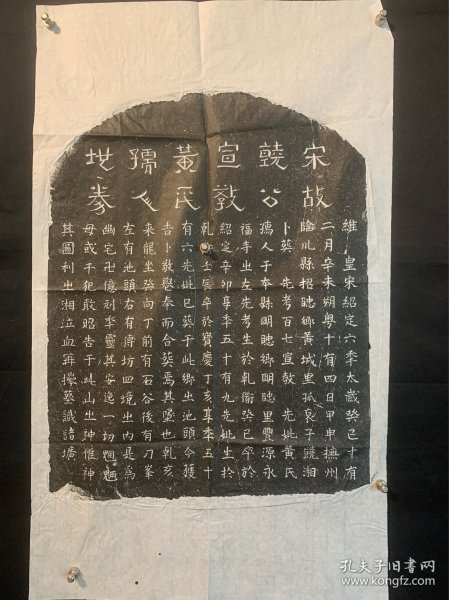 宋故
饒公
宣教
黃氏
孺人
地券
維皇宋紹定六年太歲癸巳十有
二月辛未朔粤十有四日甲申撫州
臨川縣招賢鄉黃城里孤哀子饒湘
卜葬先考百七宣教先妣黃氏
孺人于本縣明賢鄉明賢里豐源永
福寺之左先考生於乾道癸巳卒於
紹定辛卯享年五十有九先妣生於
乾道壬辰卒於寶慶丁亥享年五十
有六先妣已葬于此鄉之池頭今獲
吉卜教擧奉而合葬焉其墜也乾亥
來龍坐癸向丁前有石谷後有刀峯
左有池頭右有傳坊四境之內是為
幽宅卦億利季靈其各逸一切魍魎
毋或干犯敢昭告于此山之神惟神
其圖利之湘泣血再據墓識諸壙
孔夫子旧书网
www.kongfz.com